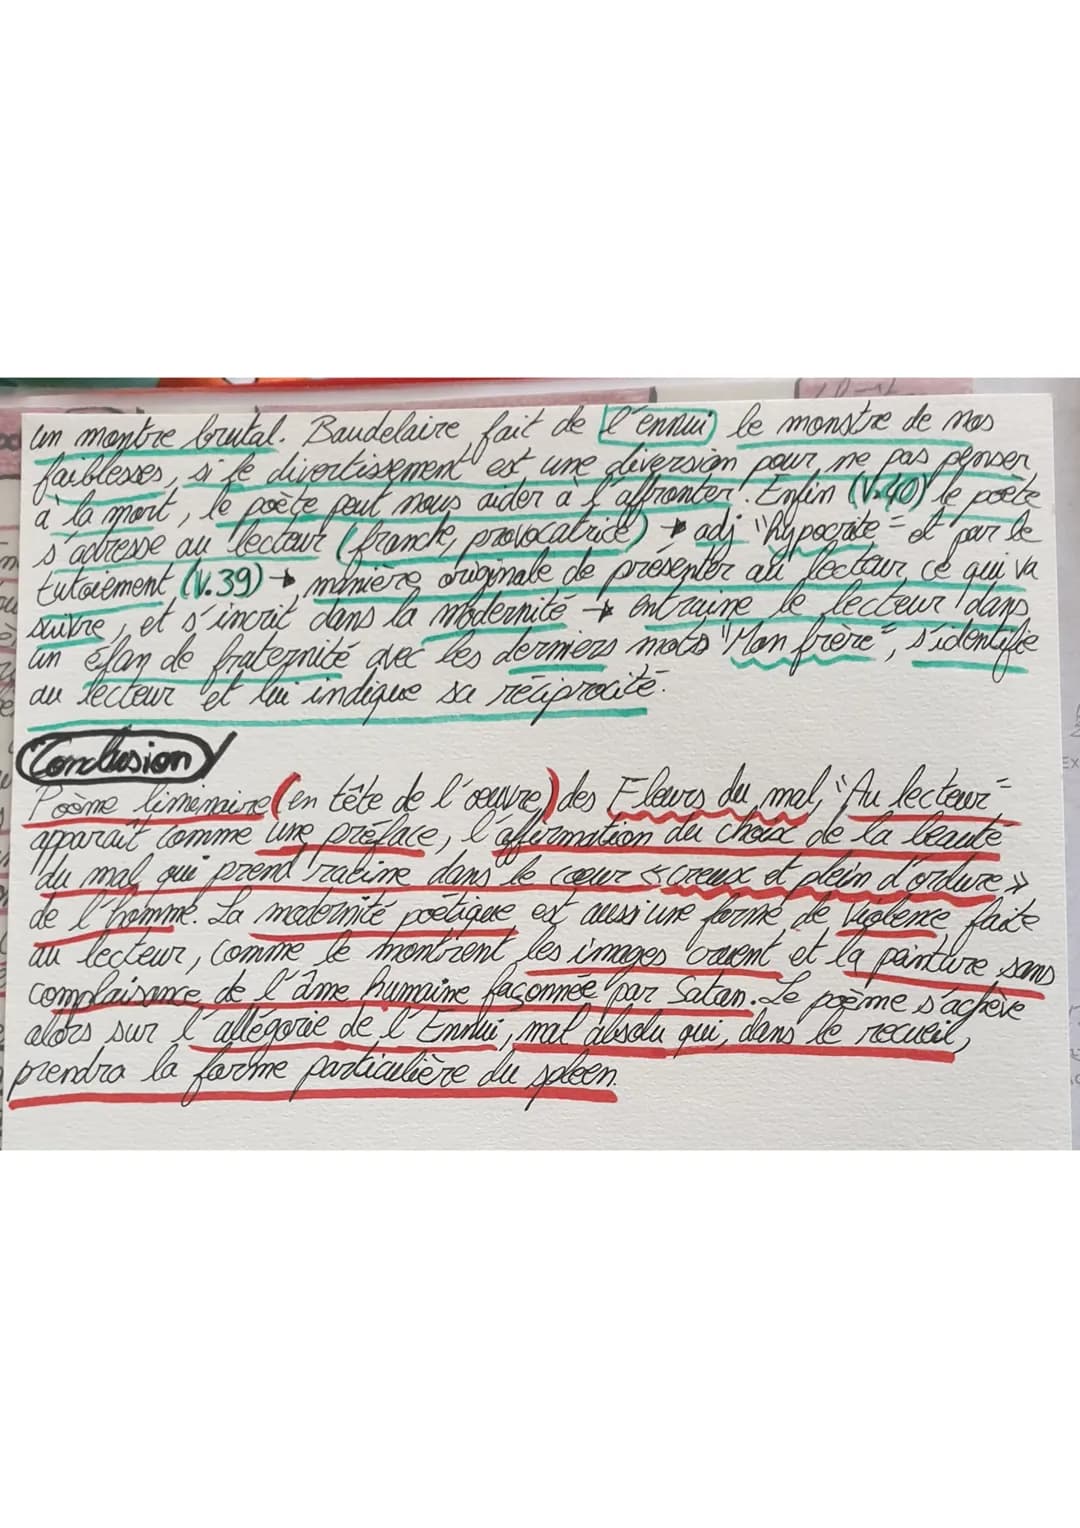 un montre brutal. Baudelaire fait de l'ennui le monstre de nos
faiblesses, si le divertissement est une diversion pour ne pas penser
à la mort, le poète peut nous aider à l'affronter. Enfin (V.40) le poète
s'adresse au lecteur (franche, provocatrice) → adj "hypocrite" et par le
tutoiement (V.39) → manière originale de présenter au lecteur, ce qui va
suivre, et s'incrit dans la modernité → entraine le lecteur dans
un élan de fraternité avec les derniers mots "Mon frère", s'identifie
au lecteur et lui indique sa réciprocité.
Conclusion
Poème liminaire (en tête de l'œuvre) des Fleurs du mal, "Au lecteur"
apparaît comme une préface, l'affirmation du choix de la beauté
du mal qui prend racine dans le cœur «creux et plein d'ordure»
de l'homme. La modernité poétique est aussi une forme de violence faite
au lecteur, comme le montrent les images et la peinture sans
complaisance de l'âme humaine façonnée par Satan. Le poème s'achève
alors sur l'allégorie de l'Ennui, mal absolu qui, dans le recueil,
prendra la forme particulière du spleen.